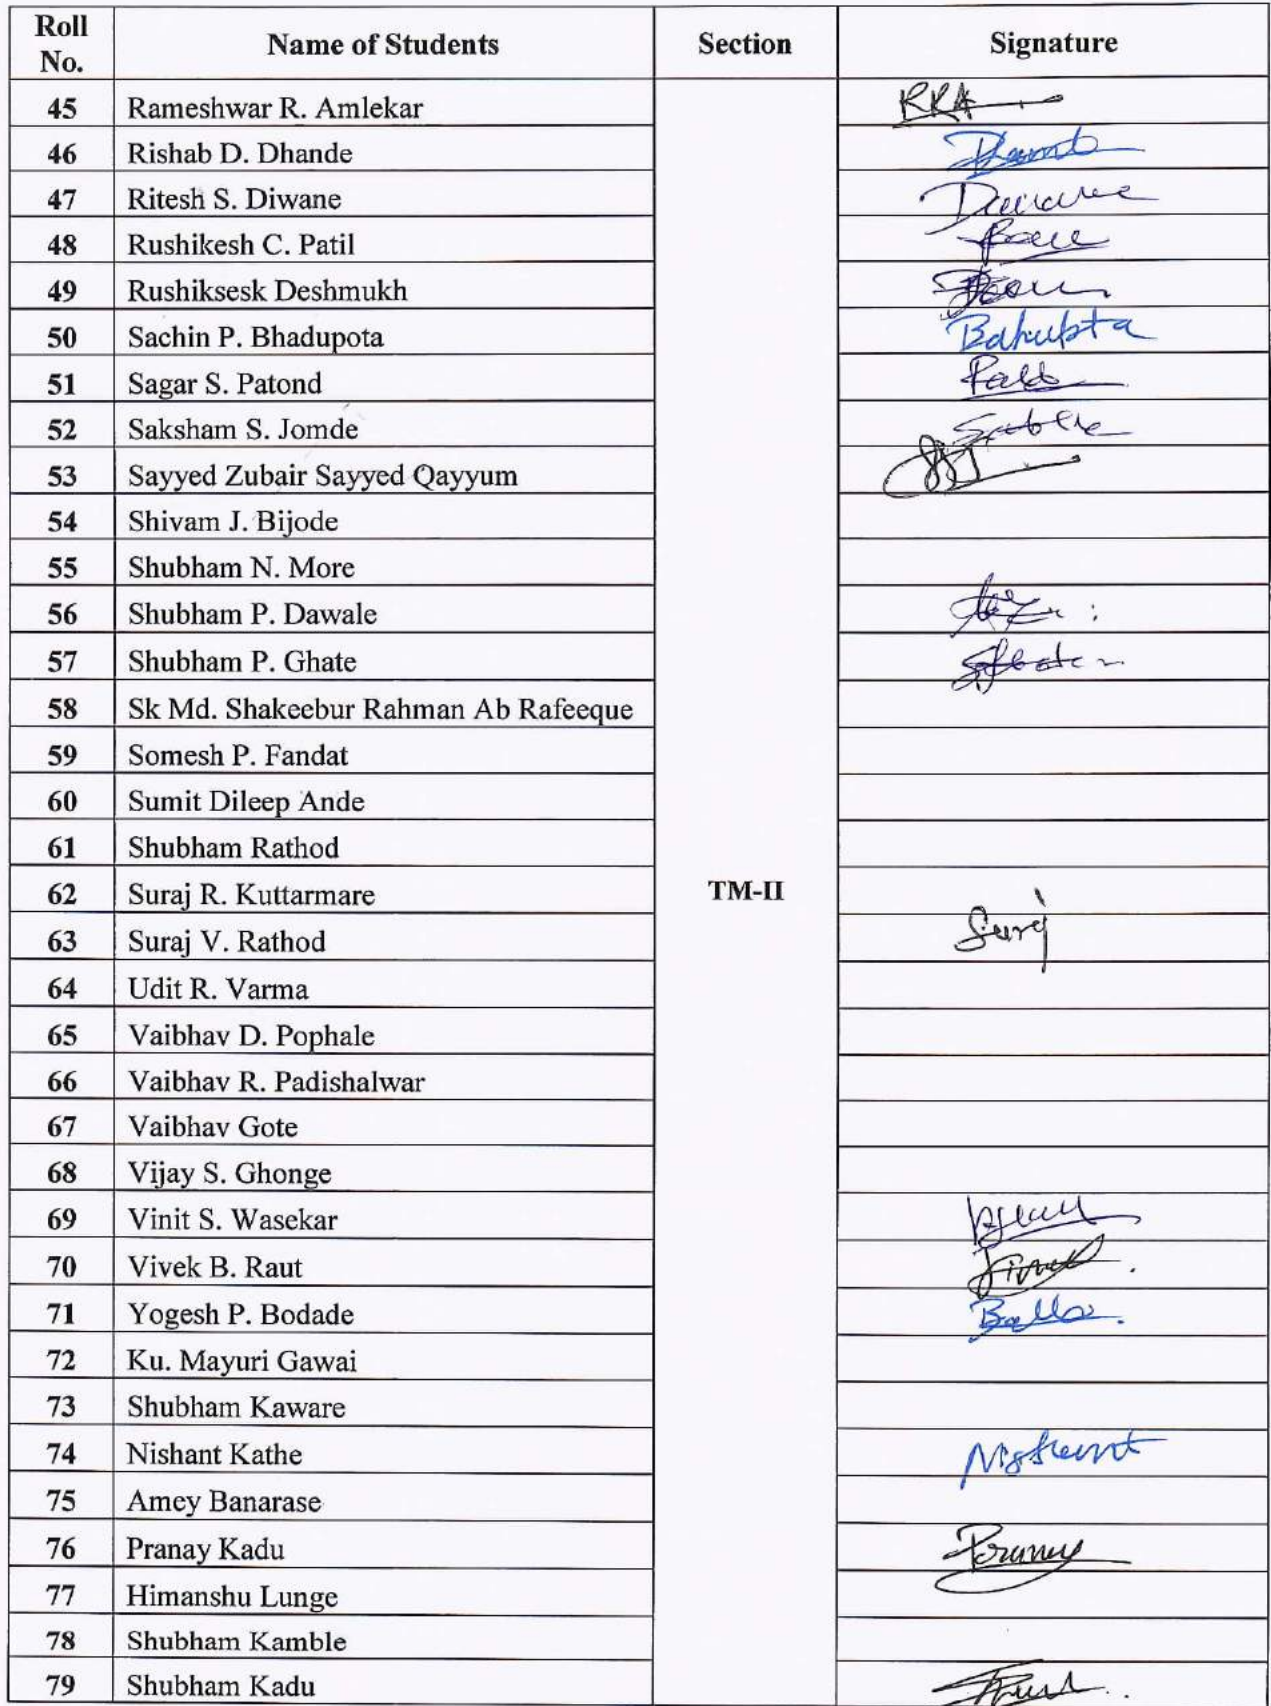 Roll No. Name of Students Section Signature
45 Rameshwar R. Amlekar RRA
46 Rishab D. Dhande
47 Ritesh S. Diwane
48 Rushikesh C. Patil
49 Rushiksesk Deshmukh
50 Sachin P. Bhadupota
51 Sagar S. Patond
52 Saksham S. Jomde
53 Sayyed Zubair Sayyed Qayyum
54 Shivam J. Bijode
55 Shubham N. More
56 Shubham P. Dawale
57 Shubham P. Ghate
58 Sk Md. Shakeebur Rahman Ab Rafeeque
59 Somesh P. Fandat
60 Sumit Dileep Ande
61 Shubham Rathod
62 Suraj R. Kuttarmare TM-II
63 Suraj V. Rathod Suraj
64 Udit R. Varma
65 Vaibhav D. Pophale
66 Vaibhav R. Padishalwar
67 Vaibhav Gote
68 Vijay S. Ghonge
69 Vinit S. Wasekar
70 Vivek B. Raut
71 Yogesh P. Bodade
72 Ku. Mayuri Gawai
73 Shubham Kaware
74 Nishant Kathe Nishant
75 Amey Banarase
76 Pranay Kadu Pranay
77 Himanshu Lunge
78 Shubham Kamble
79 Shubham Kadu